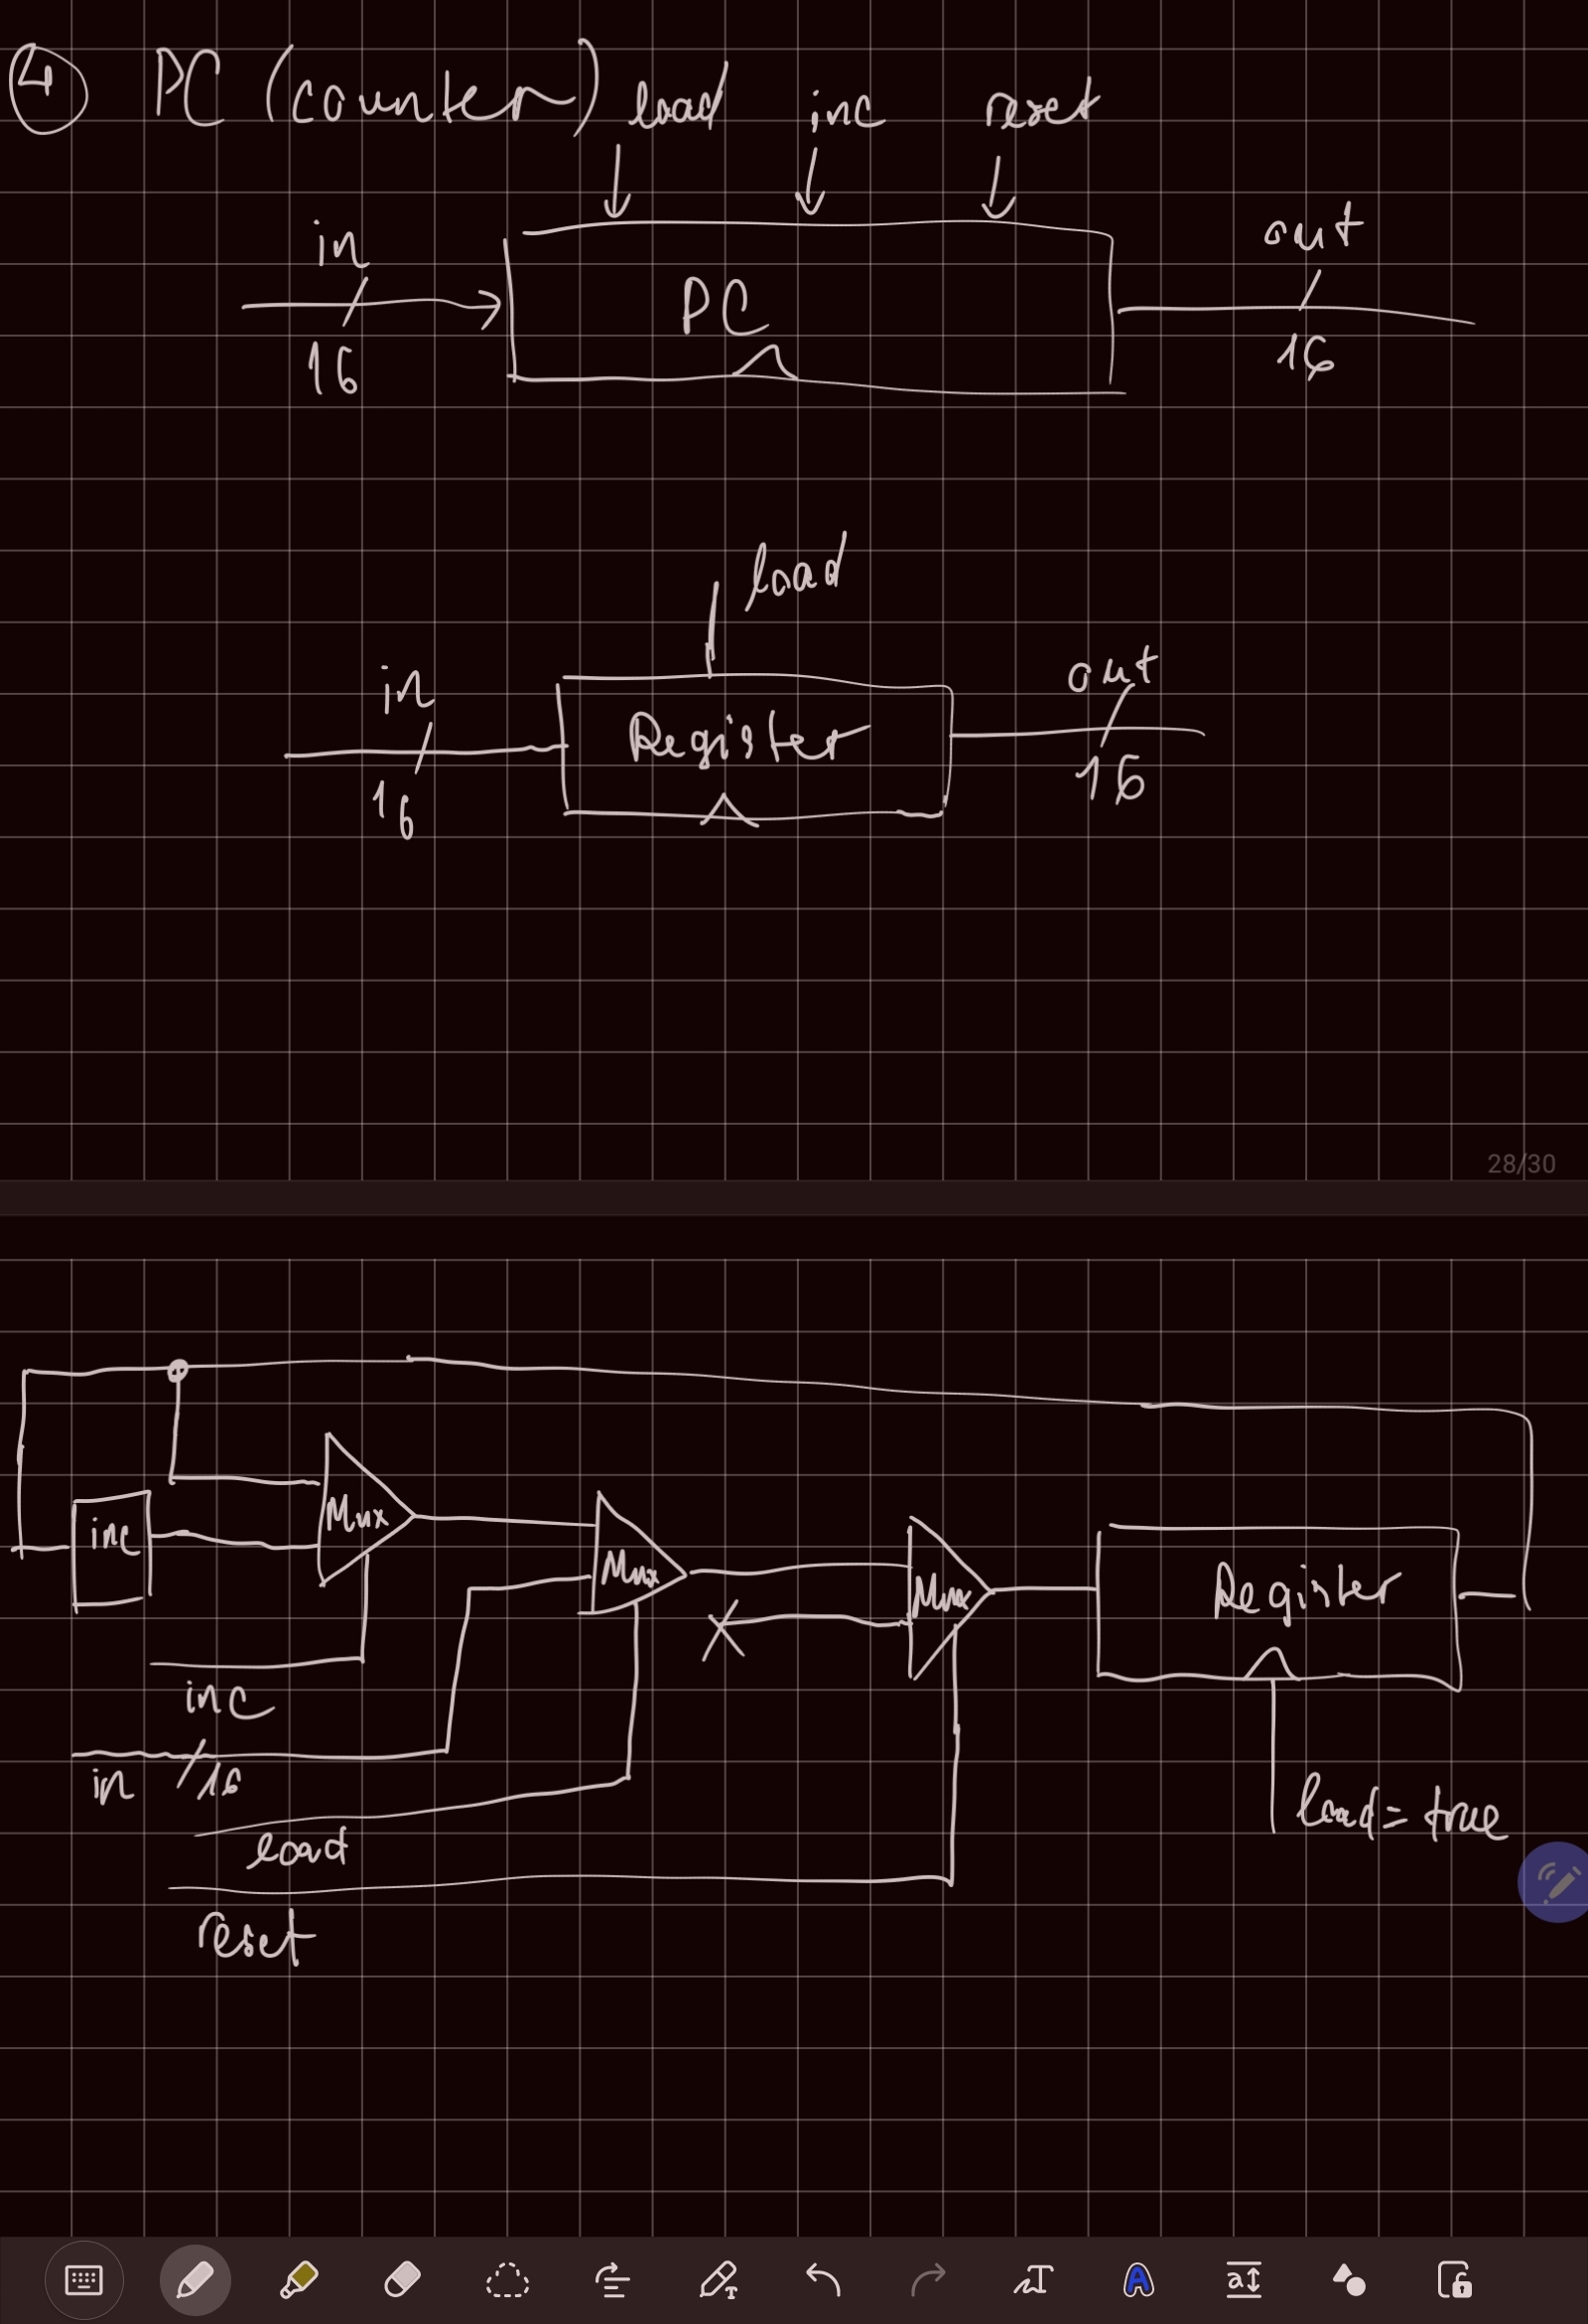 ④ PC (counter)
load inc reset
in out
PC
16 16
load
in out
Register
16 16
28/30
inc Mux Mux Mux Register
inc
in 16
load = true
load
reset